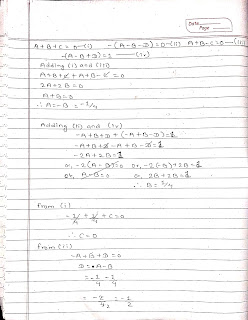 Date
Page
A+B+C=0—(i) -(A-B-D)=0—(ii) A+B-C=0—(iii)
-(A-B+D)=1 —(iv)
Adding (i) and (iii)
A+B+C+A+B-C=0
2A+2B=0
A+B=0
∴ A=-B =-1/4
Adding (ii) and (iv)
-A+B+D+(-A+B-D)=1
-A+B+D-A+B-D=1
-2A+2B=1
or, -2(A-B)=0 or, -2(-B)+2B=1
or, A-B=0 or, 2B+2B=1
∴ B=1/4
From (i)
-1/4+1/4+C=0
∴ C=0
From (ii)
-A+B+D=0
D=A-B
=-1/4-1/4
=-2/4 2=-1/2